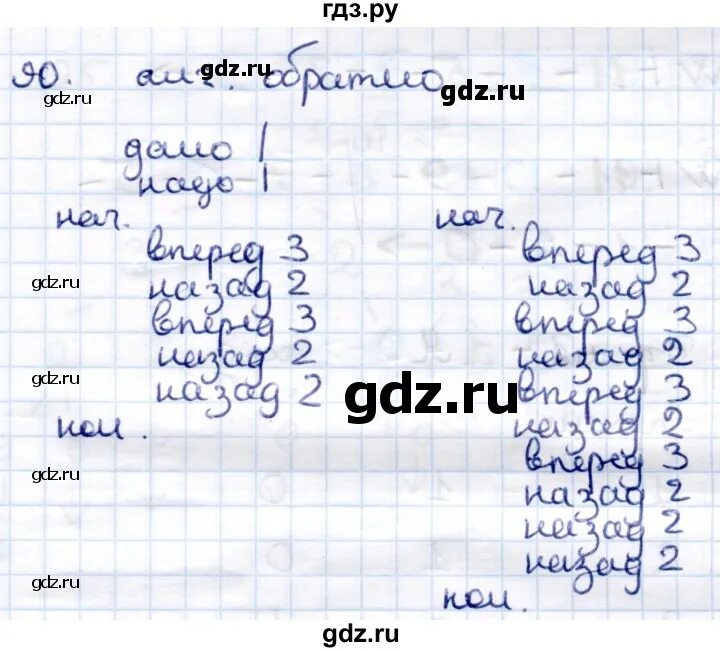 гдз.ру
90. алг. обратно
gdz.ru
gdz.ru
gdz.ru
дано |
надо |
нач.
вперед 3
назад 2
вперед 3
назад 2
назад 2
кон.
нач.
вперед 3
назад 2
вперед 3
назад 2
вперед 3
назад 2
вперед 3
назад 2
назад 2
назад 2
кон.
gdz.ru
gdz.ru
gdz.ru
gdz.ru
gdz.ru
gdz.ru